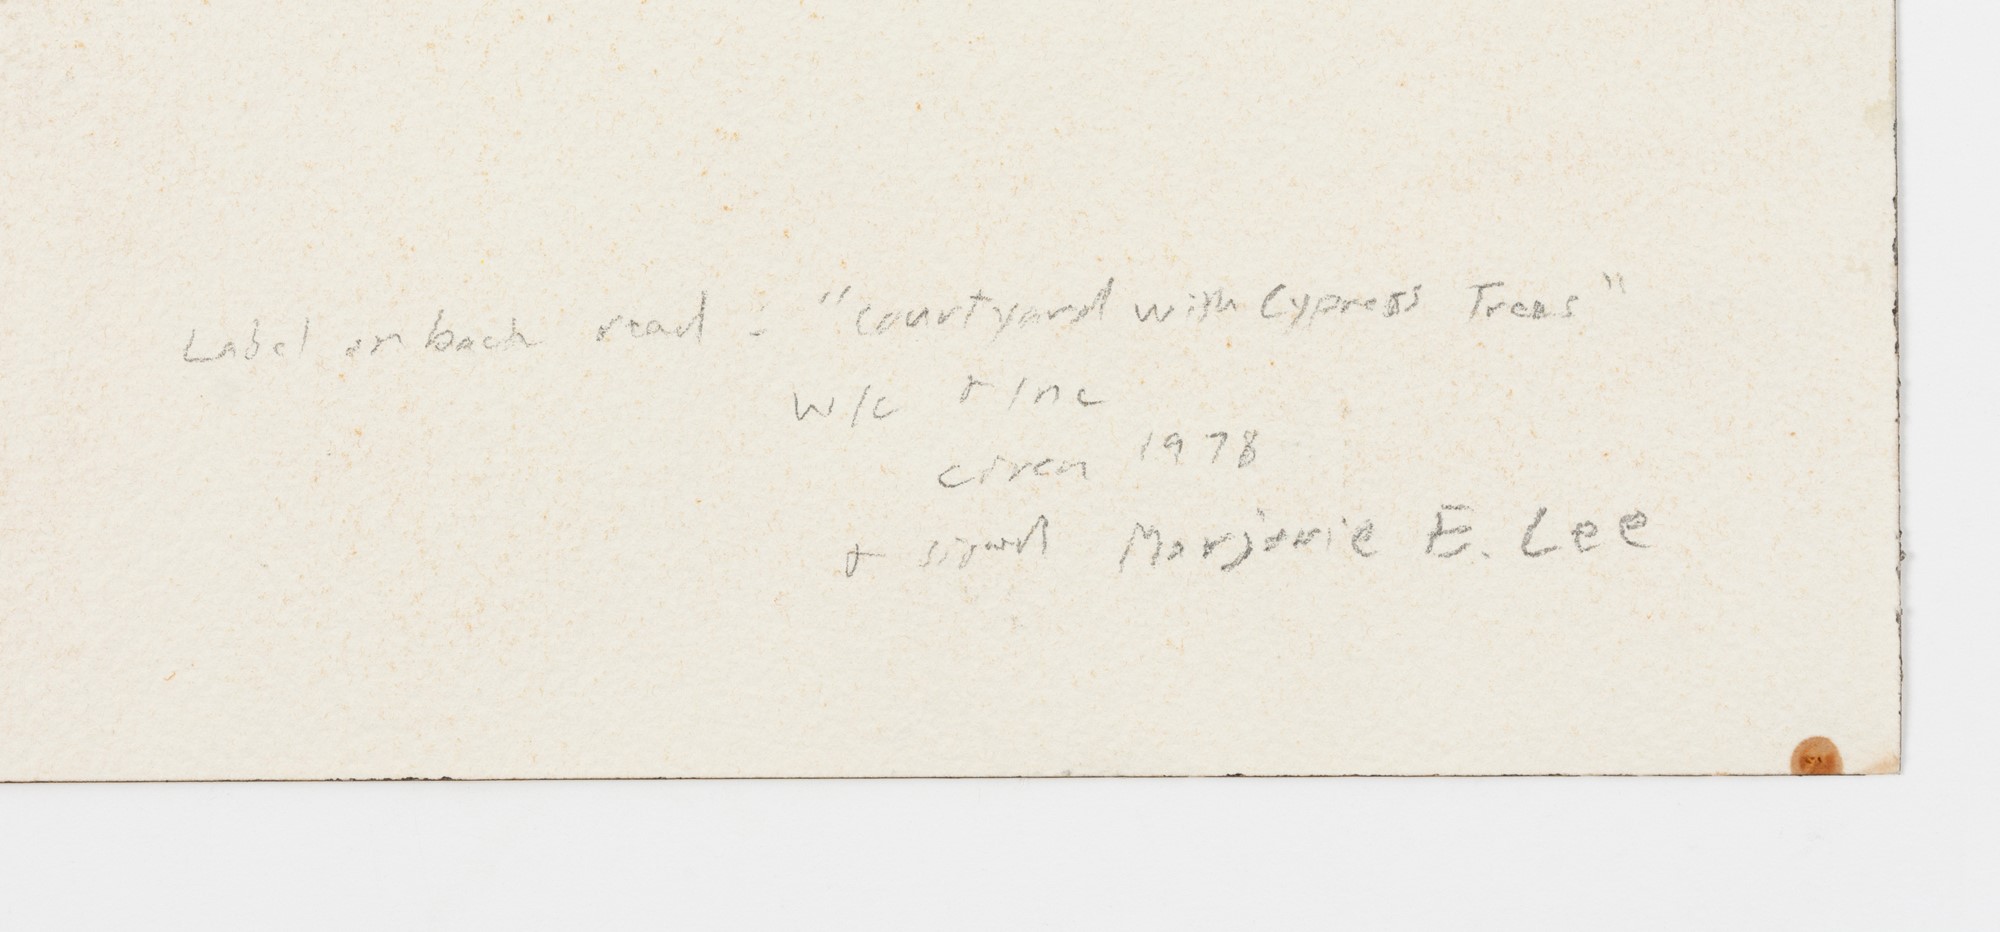 Label on back read - "Courtyard with Cypress Trees"
w/c + inc
circa 1978
+ signed Marjorie E. Lee